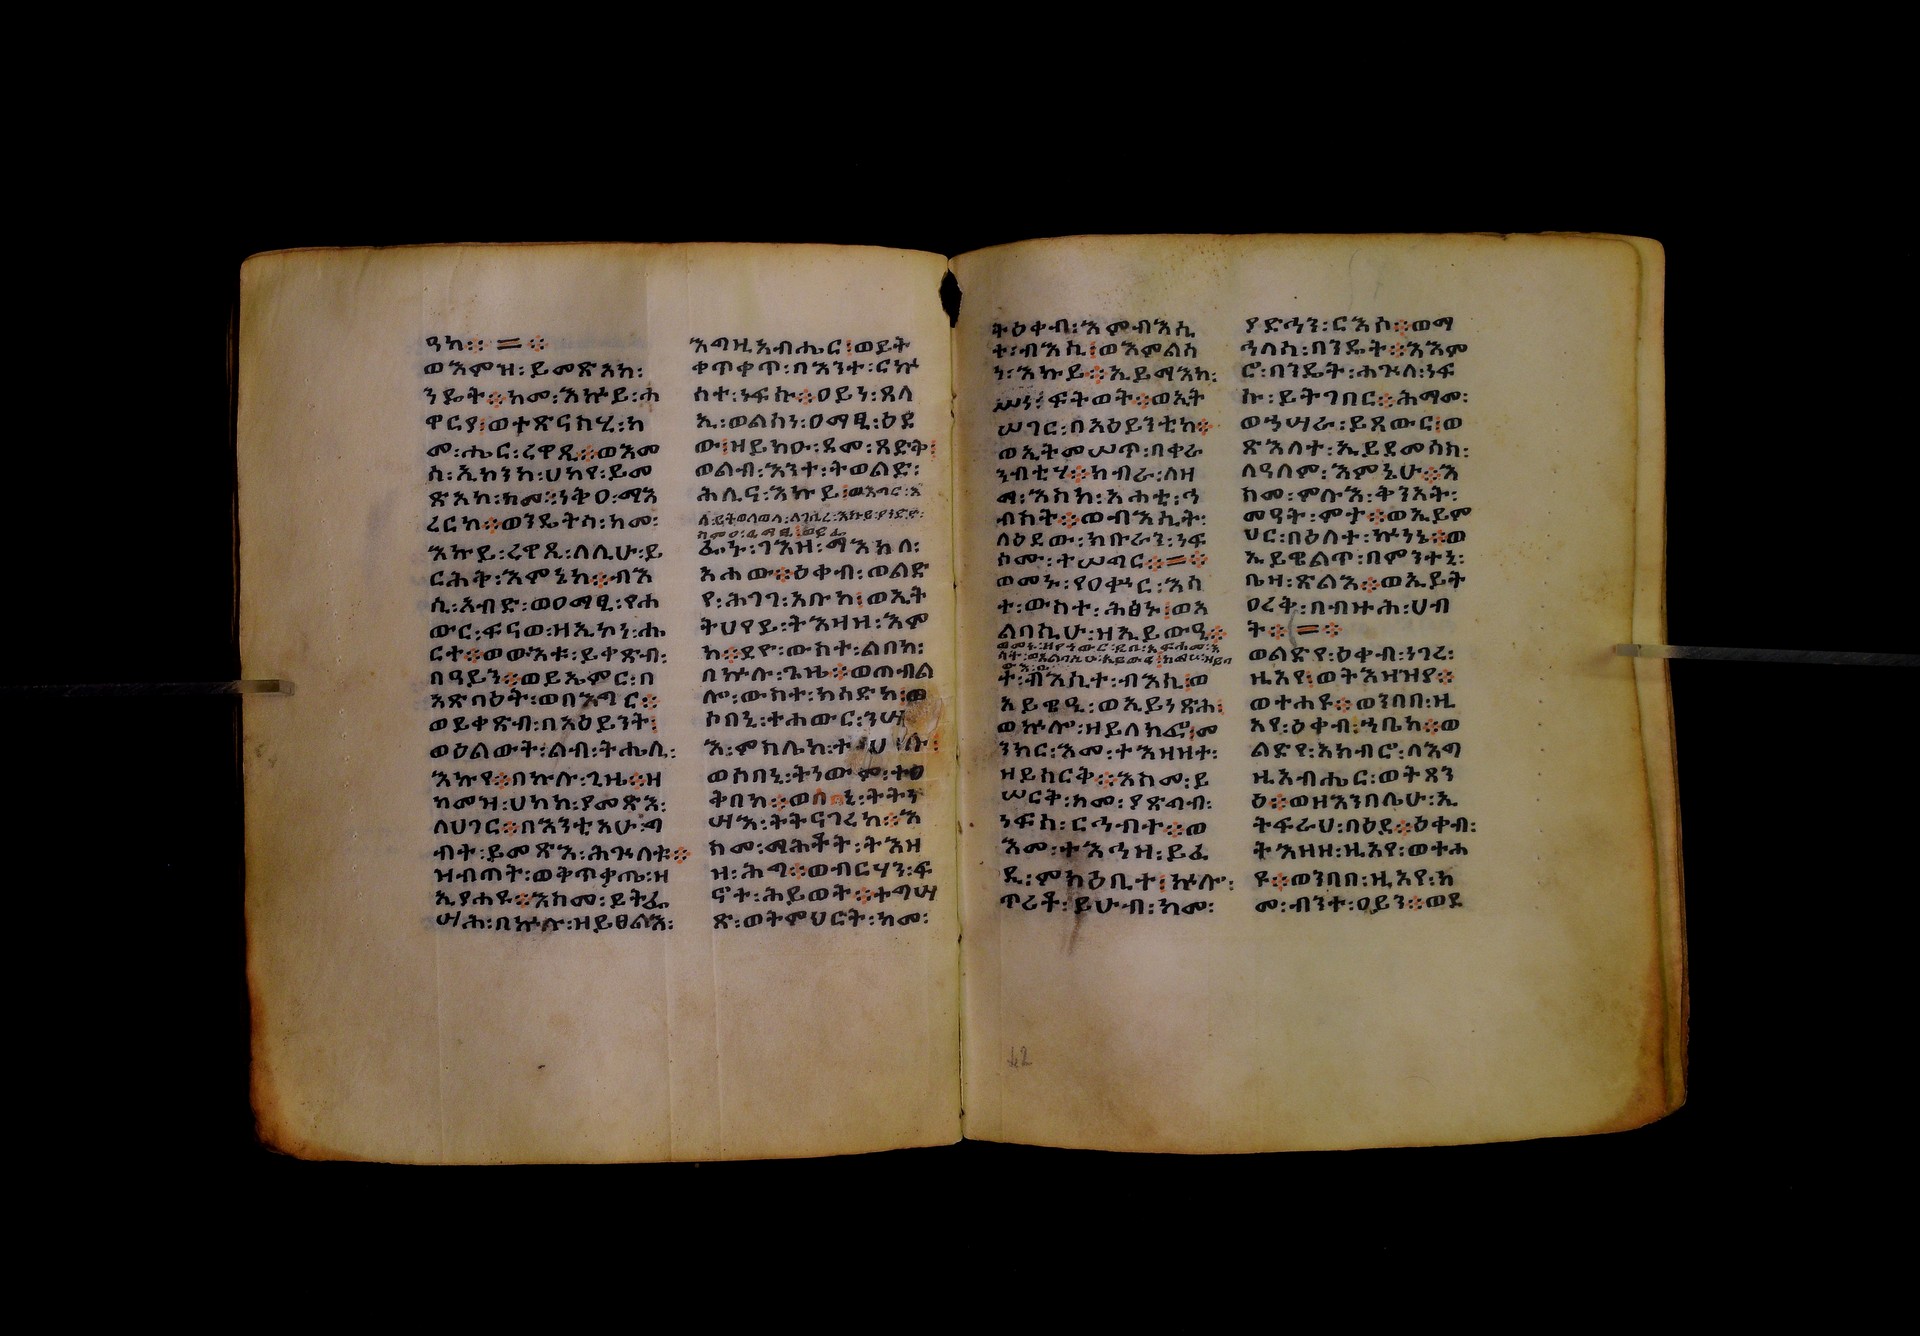 ዓከ፡፡ ፡፡
ወእምዝ፡ይመጽአከ፡
ንዴት፡፡ከመ፡እኩይ፡ሐ
ዋርያ፡ወተጽናስሂ፡ከ
መ፡ሔር፡ረዋጺ፡፡ወእመ
ሰ፡ኢኮንከ፡ሀካየ፡ይመ
ጽአከ፡ከመ፡፡ነቅዐ፡ማእ
ረርከ፡፡ወንዴትሰ፡ከመ፡
እኩይ፡ረዋጺ፡ለሊሁ፡ይ
ርሕቅ፡እምኔከ፡፡ብእ
ሲ፡አብድ፡ወዐማፂ፡የሐ
ውር፡ፍናወ፡ዘኢኮነ፡ሔ
ርተ፡፡ወውእቱ፡ይቀጽብ፡
በዓይን፡፡ወይኤምር፡በ
አጽባዕት፡ወበእግር፡፡
ወይቀጽብ፡በአዕይንት፡
ወዕልውት፡ልብ፡ትሔሊ፡
እኩየ፡፡በኵሉ፡ጊዜ፡፡ዘ
ከመዝ፡ሀከከ፡ያመጽእ፡
ለሀገር፡፡በእንቲአሁ፡ግ
ብት፡ይመጽእ፡ሕጕለቱ፡፡
ዝብጠት፡ወቅጥቃጤ፡ዘ
ኢየሐዩ፡፡እስመ፡ይትፌ
ሣሕ፡በኵሉ፡ዘይፀልእ፡
እግዚአብሔር፡ወይት
ቀጥቀጥ፡በእንተ፡ርኵ
ስተ፡ነፍሱ፡፡ዐይነ፡ጸላ
ኢ፡ወልሳነ፡ዐማፂ፡ዕደ
ው፡ዘይክዑ፡ደመ፡ጻድቅ፡
ወልብ፡እንተ፡ትወልድ፡
ሕሊና፡እኩይ፡ወእግር፡እ
ፌኑ፡ገእዝ፡ማእከለ፡
አሐው፡፡ዕቀብ፡ወልድ
የ፡ሕገገ፡አቡከ፡ወኢት
ትሀየይ፡ትእዛዘ፡እም
ከ፡፡ደዮ፡ውስተ፡ልበከ፡
በኵሉ፡ጊዜ፡፡ወጠብል
ሎ፡ውስተ፡ክሳድከ፡ወ
ሶበኒ፡ተሐውር፡ንሣ
እ፡ምስሌከ፡ተ
ወሶበኒ፡ትነውም፡ተዐ
ቅበከ፡፡ወሶበኒ፡ትትን
ሣእ፡ትትናገረከ፡፡እ
ስመ፡ማሕቶት፡ትእዛ
ዝ፡ሕግ፡፡ወብርሃን፡ፍ
ኖተ፡ሕይወት፡፡ተግሣ
ጽ፡ወትምህርት፡ከመ፡
ትዕቀብ፡እምብእሲ
ት፡ብእሲ፡ወእምልሳ
ን፡እኩይ፡፡ኢይማእከ፡
ሥነ፡ፍትወት፡፡ወኢት
ሠገር፡በአዕይንቲከ፡፡
ወኢትመሠጥ፡በቀራ
ንብቲሃ፡፡ክብራ፡ለዘ
ማ፡እስከ፡አሐቲ፡ኅ
ብስት፡፡ወብእሲት፡
ለዕደው፡ክቡራን፡ነፍ
ሶሙ፡ተሠግር፡፡ ፡፡
ወመኑ፡የዐቍር፡እሳ
ተ፡ውስተ፡ሕፅኑ፡ወአ
ልባሲሁ፡ዘኢይውዒ፡፡
ት፡ብእሲተ፡ብእሲ፡ወ
ኢይዌዒ፡ወኢይነጽሕ፡
ወኵሎ፡ዘይለክፎ፡መ
ንክር፡እመ፡ተእዝዘት፡
ዘይሰርቅ፡፡እስመ፡ይ
ሠርቅ፡ከመ፡ያጽግብ፡
ነፍሰ፡ርኅብተ፡፡ወ
እመ፡ተእኅዘ፡ይፈ
ዲ፡ምስዕቢተ፡ኵሎ፡
ጥሪቶ፡ይሁብ፡ከመ፡
ያድኅን፡ርእሶ፡፡ወማ
ኅለሰ፡በንዴት፡፡አእም
ሮ፡በንዴት፡ሕጕለ፡ነፍ
ሱ፡ይትገበር፡፡ሕማመ፡
ወኀሣራ፡ይጸውር፡ወ
ጽእለተ፡ኢይደመሰስ፡
ለዓለም፡እምኔሁ፡፡እ
ስመ፡ምሉእ፡ቅንአት፡
መዓት፡ምታ፡፡ወኢይም
ህር፡በዕለተ፡ኵነኔ፡፡ወ
ኢይዌልጥ፡በምንተኒ፡
ቤዛ፡ጽልእ፡፡ወኢይት
ዐረቅ፡በብዙሕ፡ሀብ
ት፡፡ ፡፡
ወልድየ፡ዕቀብ፡ነገረ፡
ዚአየ፡ወትእዛዝየ፡፡
ወተሐዩ፡፡ወንበበ፡ዚ
አየ፡ዕቀብ፡ኀቤከ፡፡ወ
ልድየ፡አክብሮ፡ለእግ
ዚአብሔር፡ወትጸን
ዕ፡፡ወዘእንበሌሁ፡ኢ
ትፍራህ፡በዕደ፡፡ዕቀብ፡
ትእዛዘ፡ዚአየ፡ወተሐ
ዩ፡፡ወንበበ፡ዚአየ፡ከ
መ፡ብንተ፡ዐይን፡፡ወደ
42